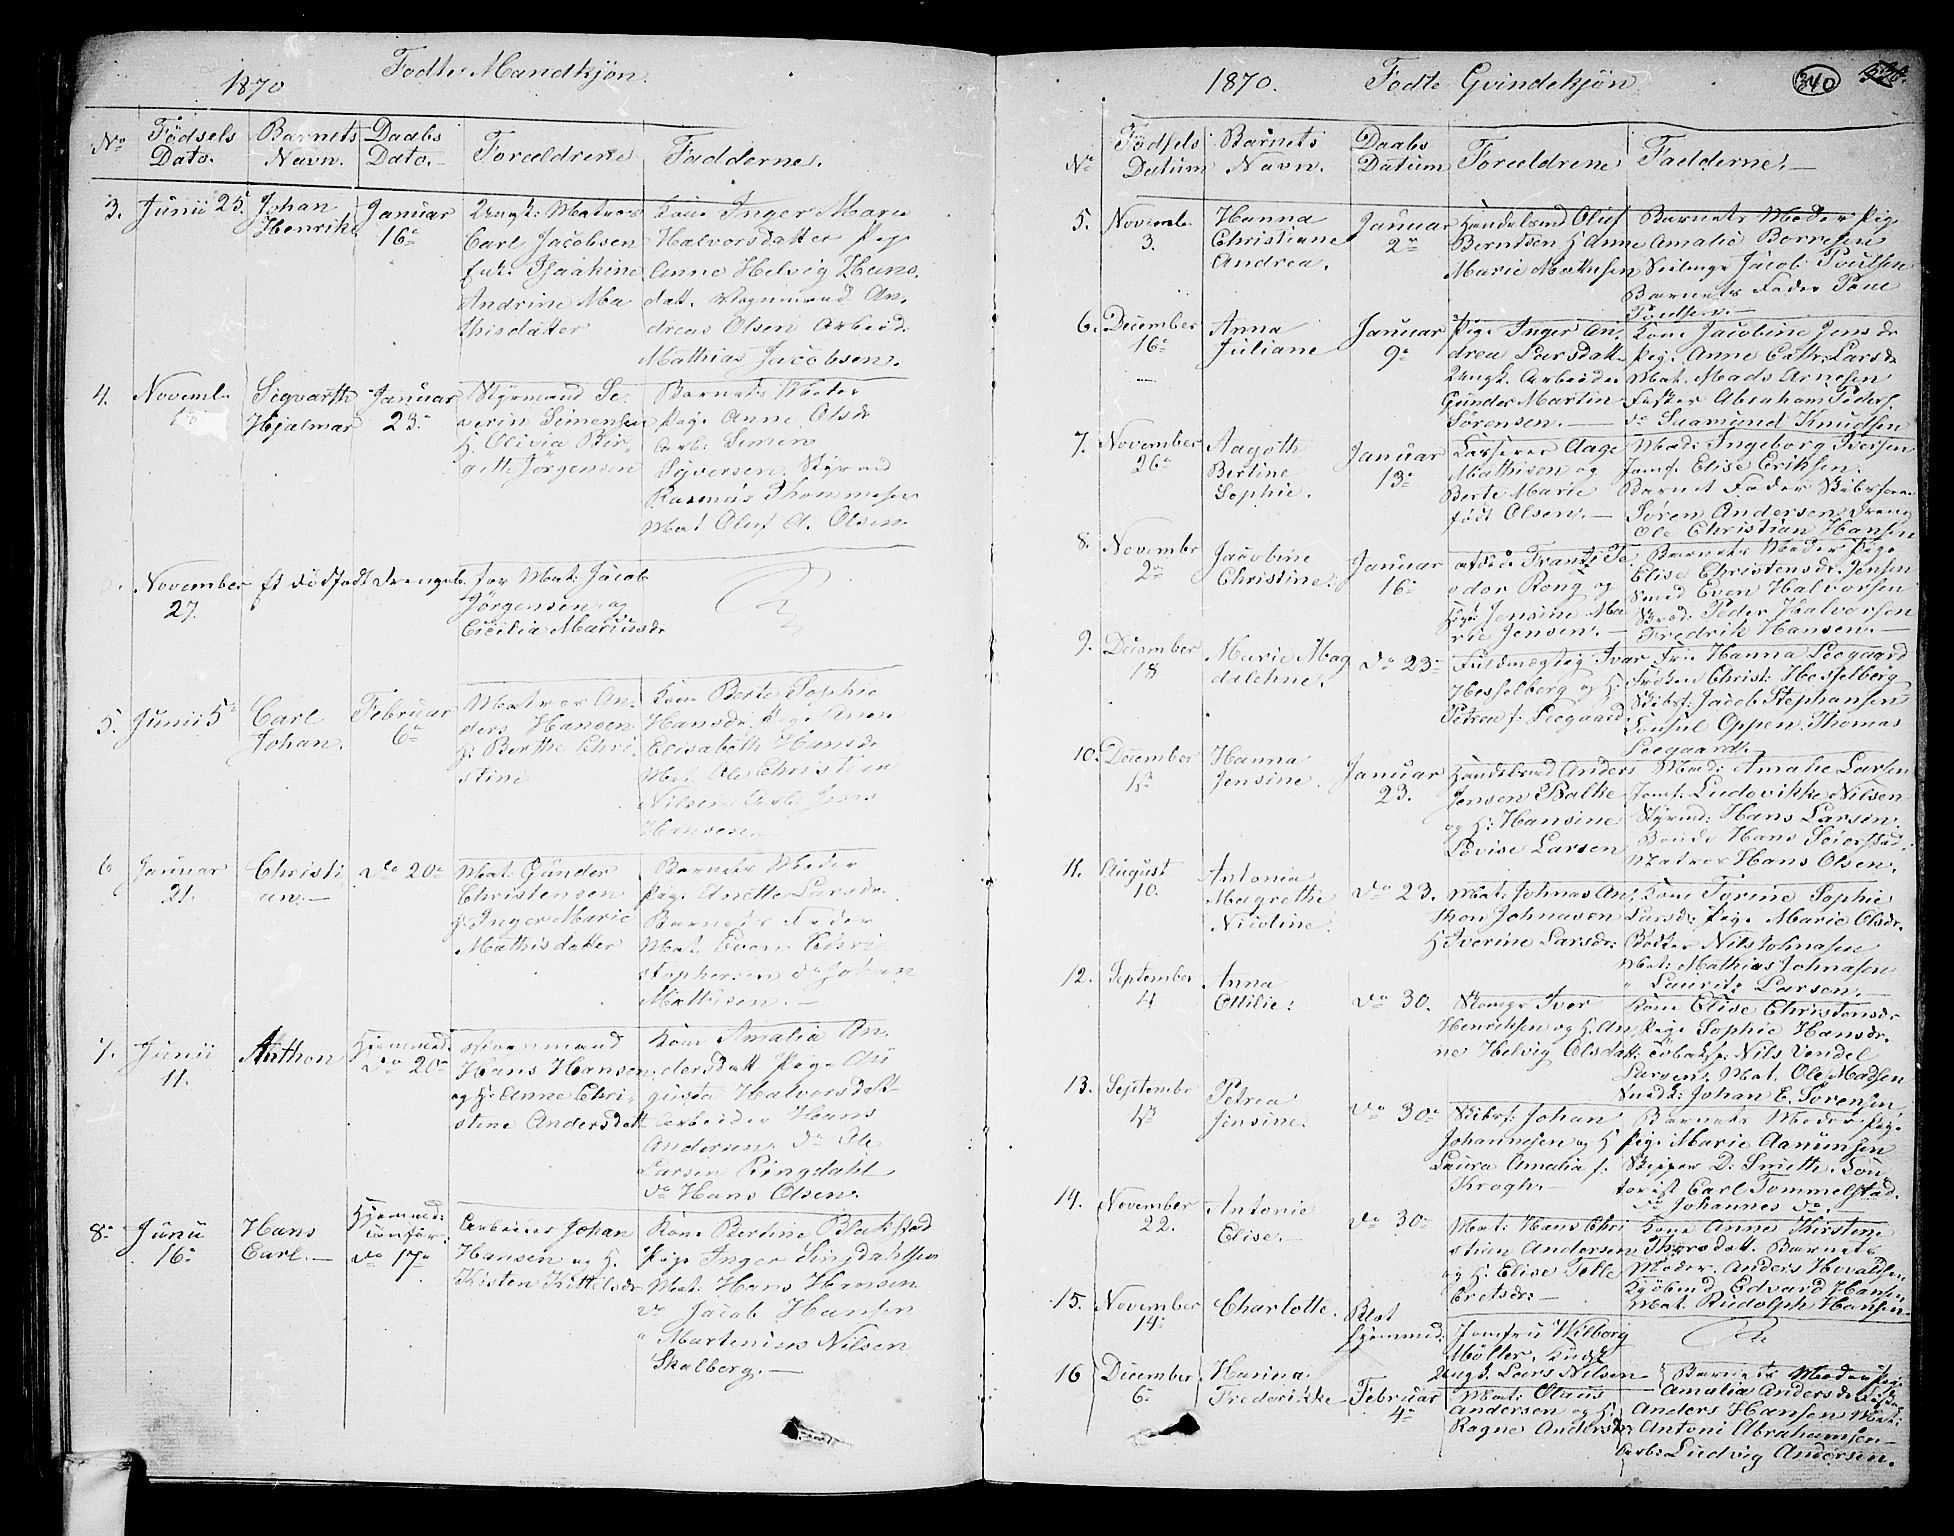 1870
Fødte Mandkjøn.
No
Fødsels Dato.
Barnets Navn.
Daabs Dato.
Forældrene
Fadderne.
3. Junii 25. Johan Henrik Januar 16de
Ungk: Matros
Carl Jacobsen
Andrine Ma
thisdatter
Kone Inger Marie
Halvorsdatter Pige
Anne Helvig Hans
datt. Vognmand An
dreas Olsen Arbeid.
Mathias Jacobsen.
4. Novemb. Sigvarth Hjalmar Januar 23de
Styrmand Se
verin Simensen
H. Olivia Bir
gitte Jørgensen
Barnets Moder
Pige Anne Olsdr
Arb: Simen
Syversen. Styrmd
Rasmus Thommesen
Mat Oluf A. Olsen.
November 27. Et dødfødt Drengeb. for Mat: Jacob
Jørgensen og
Cicilia Mariusdr
5. Junii 5te Carl Johan. Februar 6te
Matros An
ders Hansen
H: Berthe Chri
stine
Kone Berte Sophie
Hansdr. Pige Anne
Elisabeth Hansdr
Mat. Ole Christian
Nilsen Arb. Jens
Hansen.
6 Januar 21. Christi an. do 20de
Mat. Gunder
Christensen
H. Inger Marie
Mathisdatter
Barnets Moder
Pige Anette Larsdr.
Barnets Fader
Mat. Even Chri
stophersen do Johan
Mathisen.
7. Junii 11. Anthon Hjemmed. do 20de
Hans Hansen
og H. Anne Chri
stine Andersdatt
Kone Amalia An
dersdatt Pige Au
gusta Halvorsdatt
Arbeider Hans
Andersen, do Ole
Larsen Ringdahl
do Hans Olsen.
8de Junii 16de Hans Carl. Hjemmed: do 17de
Arbeider Johan
Hansen og H.
Kisten Kittelsdr
Kone Bertine Blakstad
Pige Inger
Mat. Hans Hansen
do Jacob Hansen
" Martenius Nilsen
Skalberg.
1870.
Fødte Qvindekjøn
340
No
Fødsels Datum
Barnets Navn.
Daabs Datum
Forældrene
Fadderne.
5. Novemb. 3. Hanna Christiane Andrea. Januar 2de
Handelsmd Oluf
Berntsen H Anne
Marie Mathisen
Barnets Moder Pige
Amalie Borresen
Jacob Poulsen
Barnets Fader Poul
Poulsen.
6. December 16de Anna Juliane Januar 9de
Pige Inger An
drea Larsdatt
Ungk. Arbeider
Gunder Martin
Sørensen.
Kone Jacobine Jensdr
Pige. Anne Cathr: Larsdr
Mat. Mads Arnesen
Fisker Abraham Peders.
do Knudsen
7. November 26de Aagoth Bertine Sophie. Januar 13de
Aage
Mathisen og
Berte Marie
født Olsen.
Mad: Ingeborg Iversen
Jomf. Elise Eriksen.
Barnets Fader
Søren Andersen Dreng
Ole Christian Hansen
8. Novembr 2de Jacobine Christine. Januar 16de
Frantz Te
odor Rong og
Jensine Ma
rie Jensen.
Barnets Moder Pige
Elise Christensdr. Jensen
Smed Even Halvorsen
Skrd: Peder Halvorsen
Fredrik Hansen.
9. December 18 Marie Mag dalehne. do 23de
Fuldmægtig Ivar
Hesselberg og H:
Petrea f: Leegaard.
Fru Hanna Leegaard
Frøken Christ: Hesselberg
Skibsf: Jacob Stephansen
Consul Oppen. Thomas
Leegaard.
10. December 13 Hanna Jensine. Januar 23.
Handelsmd Anders
Jensen Balke
og H: Hansine
Lovise Larsen
Mad: Amalie Larsen
Jomf. Ludovikke Nilsen
Styrmd: Hans Larsen.
Bonde Hans Seierstad.
Matros Hans Olsen.
11. August 10. Antonia Magrethe Nicoline. do 23.
Mat: Johnas An
thon Johnasen
H Iverine Larsdr:
Kone Torine Sophie
Larsdr. Pige Marie Olsdr.
Nils Johnasen
Mat: Mathias Johnasen
" Lauritz Larsen.
12. September 4 Anna Ottilie: do 30.
Skomgr Iver
Henriksen og H. An
ne Helvig Olsdatt:
Kone Elise Christensdr
Pige Sophie Hansdr.
Tobaksf: Nils Vendel
Larsen. Mat. Ole Madsen
Snedk: Johan E. Sørensen
13. Septembr 13 Petrea Jensine. do 30de
Skibsf: Johan
Johannesen og H
Laura Amalia f:
Krogh.
Barnets Moder Pige
Pige Marie Aanunsen
Skipper D. Smith. Con
torist Carl Tommelstad.
do Johannes do.
14. November 22. Antonie Elise. do 30de
Mat: Hans Chri
stian Andersen
og H. Elise Telle
Eretsdr:
Kone Anne Kirstene
Thorsdatt. Barnets
Moder. Anders Hovaldsen
Kjøbmd Edvard Hansen
Mat. Rudolph Hansen
15. November 14de Charlotte. Blot hjemmed.
Jomfru Wilborg
Møller.
Ungk. Lars Nilsen
16 December 6de Hanna Frederikke Februar 4de
Mat: Olaus
Andersen og H
Ragne Andersdr:
Barnets Moder Pige
Amalia Andersdr
Anders Hansen Mat:
Antoni Abrahamsen
Arb: Ludvig Andersen.